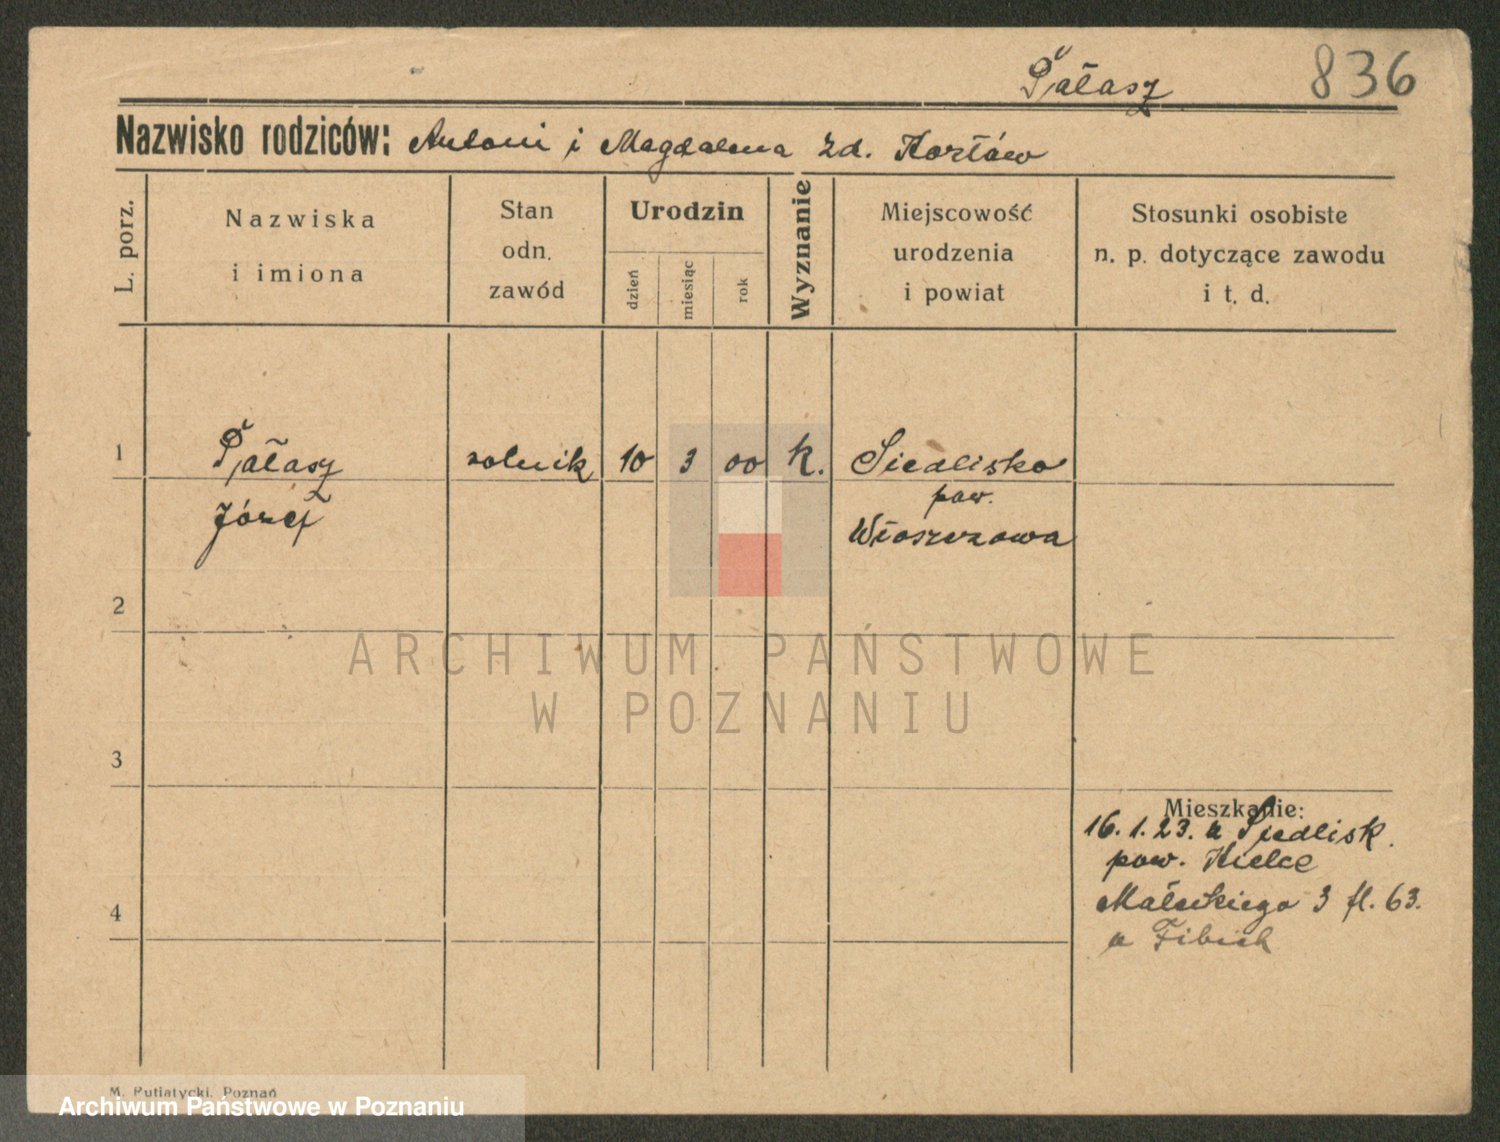 Pałasz 836
Nazwisko rodziców: Antoni i Magdalena zd. Kozłów
L. porz.
Nazwiska
i imiona
Stan
odn.
zawód
Urodzin
dzień
miesiąc
rok
Wyznanie
Miejscowość
urodzenia
i powiat
Stosunki osobiste
n. p. dotyczące zawodu
i t. d.
1 Pałasz rolnik 10 3 00 k. Siedlisko
Józef
pow.
Włoszczowa
2
3
4
Mieszkanie:
16. 1. 23. a Siedlisk.
pow. Kielce
Małeckiego 3 fl. 63.
a Fibich
ARCHIWUM PAŃSTWOWE
W POZNANIU
M. Putiatycki, Poznań
Archiwum Państwowe w Poznaniu